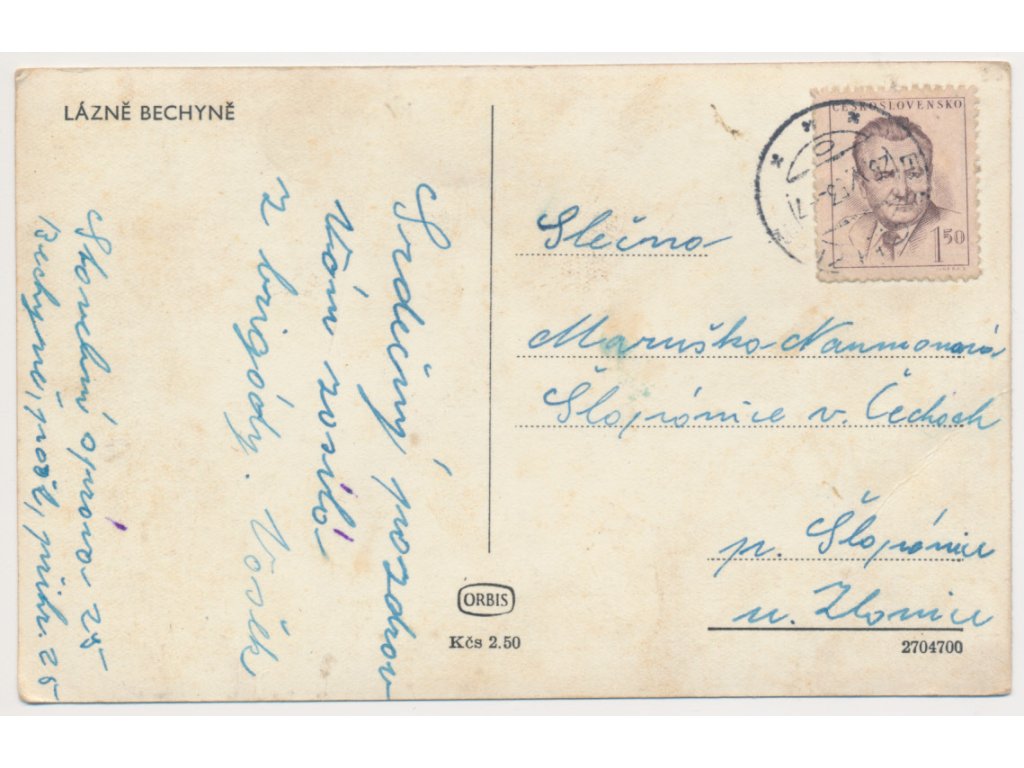 LÁZNĚ BECHYNĚ
Srdečný pozdrav
Vám zasílá
z brigády. Vašek
Stavební správa 25
Bechyně, pošt. přihr. 25
ORBIS
Kčs 2.50
ČESKOSLOVENSKO
1 50
Slečna
Maruška Naumanová
Šlapánice v. Čechách
p. Šlapánice
u. Zlonice
2704700